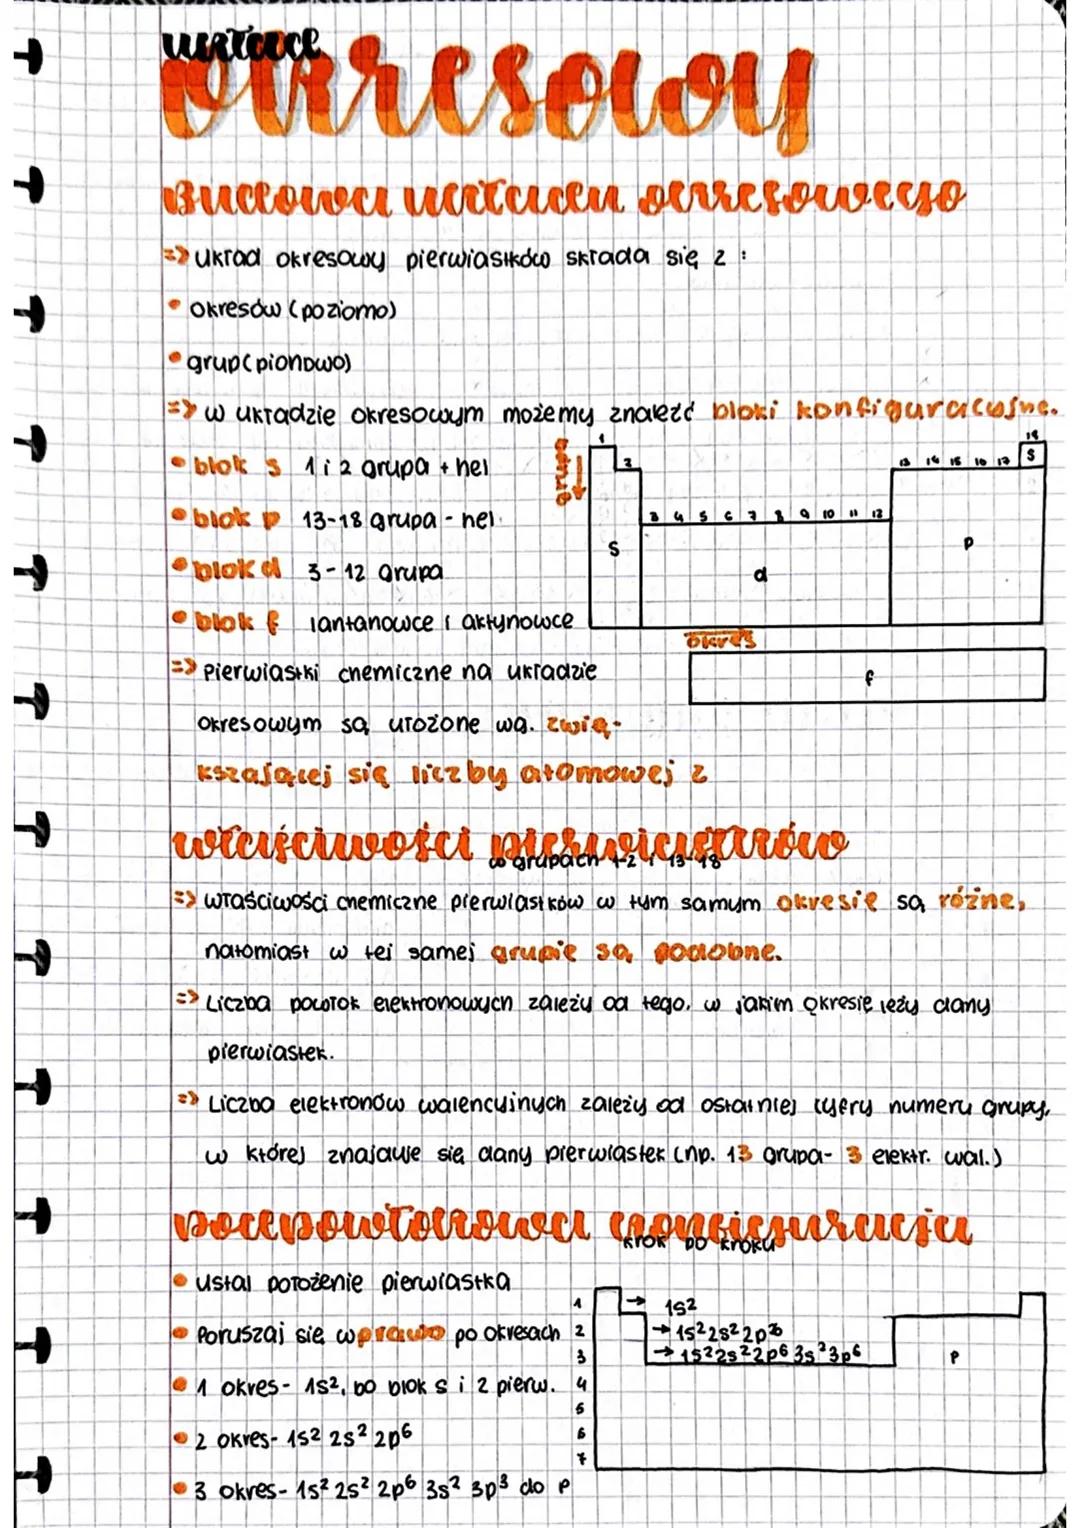 układ
okresowy
Budowa układu okresowego
=> układ okresowy pierwiastków składa się z :
• okresów (poziomo)
• grup (pionowo)
=> w układzie okresowym możemy znaleźć bloki konfiguracyjne.
• blok s 1 i 2 grupa + hel
• blok p 13-18 grupa - hel
• blok d 3-12 grupa
• blok f lantanowce i aktynowce
grupa
1
2
3 4 5 6 7 8 9 10 11 12
13 14 15 16 17
18
s
s
d
p
okres
f
=> pierwiastki chemiczne na układzie
okresowym są ułożone wg. zwię-
kszającej się liczby atomowej z
właściwości pierwiastków
w grupach 1-2 i 13-18
=> właściwości chemiczne pierwiastków w tym samym okresie są różne,
natomiast w tej samej grupie są podobne.
=> Liczba powłok elektronowych zależy od tego, w jakim okresie leży dany
pierwiastek.
=> Liczba elektronów walencyjnych zależy od ostatniej cyfry numeru grupy,
w której znajduje się dany pierwiastek (np. 13 grupa- 3 elektr. wal.)
podpowłokowa konfiguracja
krok po kroku
• ustal położenie pierwiastka
• Poruszaj się w prawo po okresach
• 1 okres- 1s², bo blok s i 2 pierw.
• 2 okres- 1s² 2s² 2p⁶
• 3 okres- 1s² 2s² 2p⁶ 3s² 3p³ do p
1
2
3
4
5
6
7
→ 1s²
→ 1s² 2s² 2p⁶
→ 1s² 2s² 2p⁶ 3s² 3p⁶
p